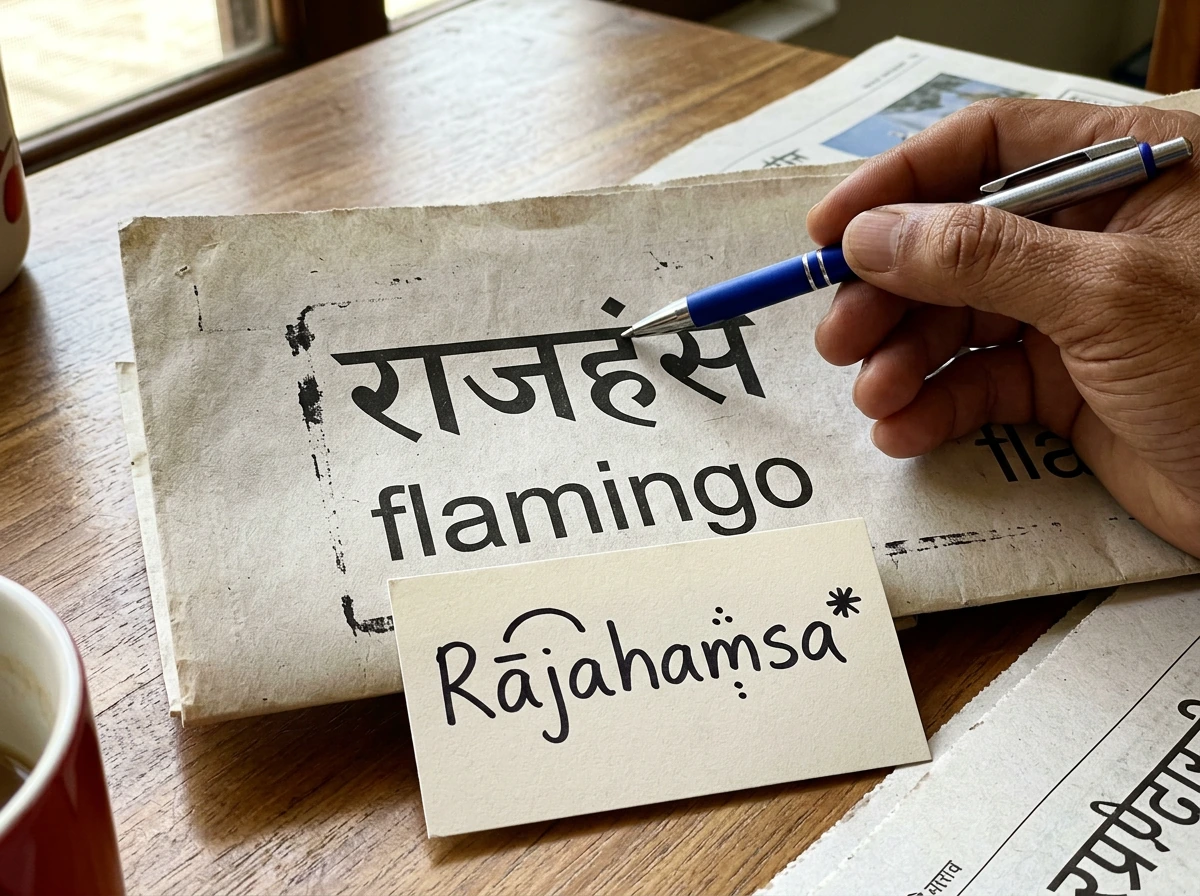 राजहंस
flamingo
fla
Rājahaṃsa*